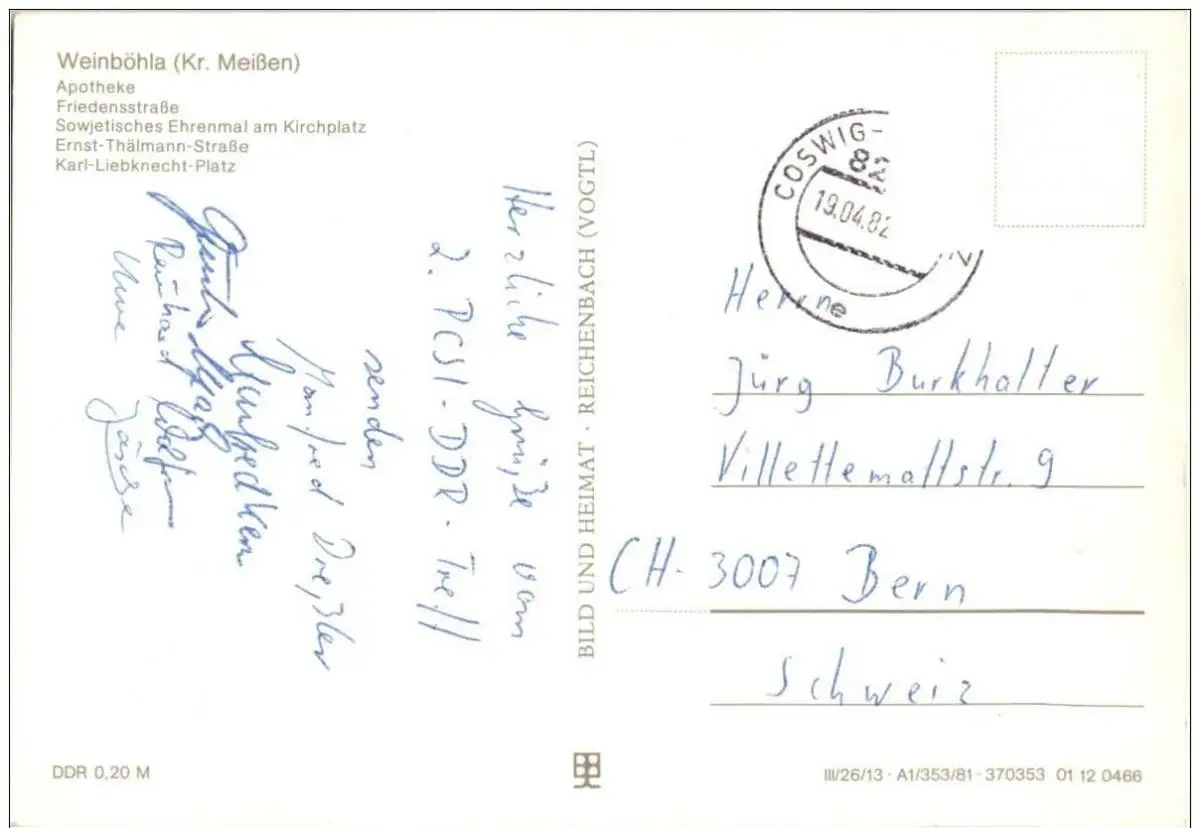 Weinböhla (Kr. Meißen)
Apotheke
Friedensstraße
Sowjetisches Ehrenmal am Kirchplatz
Ernst-Thälmann-Straße
Karl-Liebknecht-Platz
Herzliche Grüße vom
2. PCSI-DDR-Treff
senden
Manfred Dreßler
Reinhard
Uwe Jäschke
BILD UND HEIMAT · REICHENBACH (VOGTL)
COSWIG-
82
19.04.82
e
Herrne
Jürg Burkhalter
Villettemattstr. 9
CH-3007 Bern
Schweiz
DDR 0,20 M
III/26/13 · A1/353/81 · 370353 01 12 0466